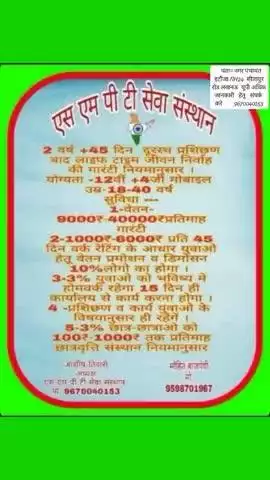 पता:- नगर पंचायत
इटौंजा सीतापुर
रोड लखनऊ यूपी अधिक
जानकारी हेतु संपर्क
करे 9670040153
एस एम पी टी सेवा संस्थान
2 वर्ष +45 दिन दूरस्थ प्रशिक्षण
बाद लाइफ टाइम जीवन निर्वाह
की गारंटी नियमानुसार ।
योग्यता -12वीं +4जी मोबाइल
उम्र-18-40 वर्ष
सुविधा ---
1-वेतन-
9000₹-40000₹प्रतिमाह
गारंटी
2-1000₹-6000₹ प्रति 45
दिन वर्क रेटिंग के आधार युवाओ
हेतु वेतन प्रमोशन व डिमोसन
10%लोगों का होगा ।
3-3% युवाओ को भविष्य मे
होमवर्क रहेगा 15 दिन ही
कार्यालय से कार्य करना होगा ।
4 -प्रशिक्षण व कार्य युवाओ के
विषयानुसार ही रहेगें ।
5-3% छात्र-छात्राओ को
100₹-1000₹ तक प्रतिमाह
छात्रवृत्ति संस्थान नियमानुसार
आशीष तिवारी
अध्यक्ष
एस एम पी टी सेवा संस्थान
मो 9670040153
मोहित बाजपेयी
मो
9598701967